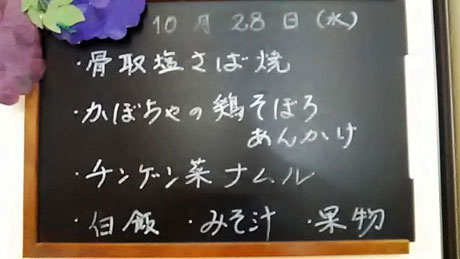 10月28日(水)
・骨取塩さば焼
・かぼちゃの鶏そぼろ
あんかけ
・チンゲン菜ナムル
・白飯 ・みそ汁 ・果物